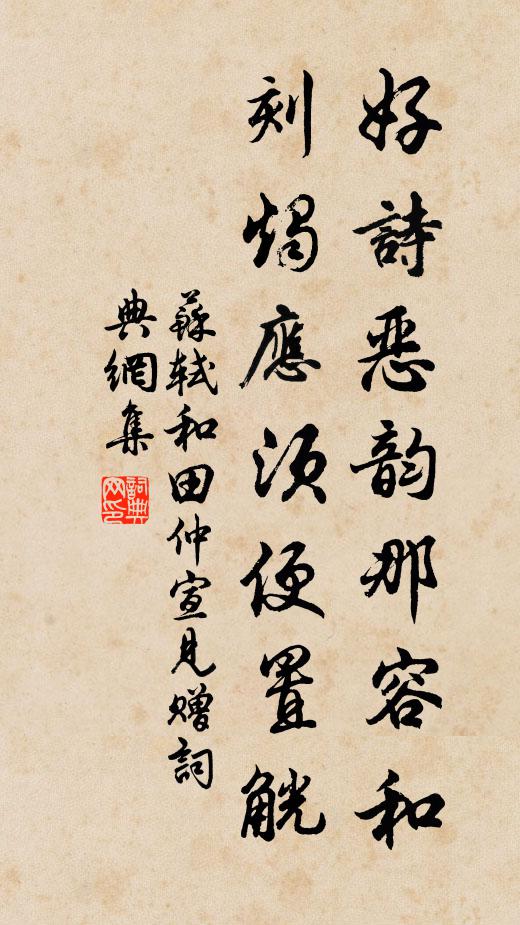 好詩恶韵那容和
刻燭應須便置觥
蘇軾和田仲宣見贈詞
典網集
詞典网印